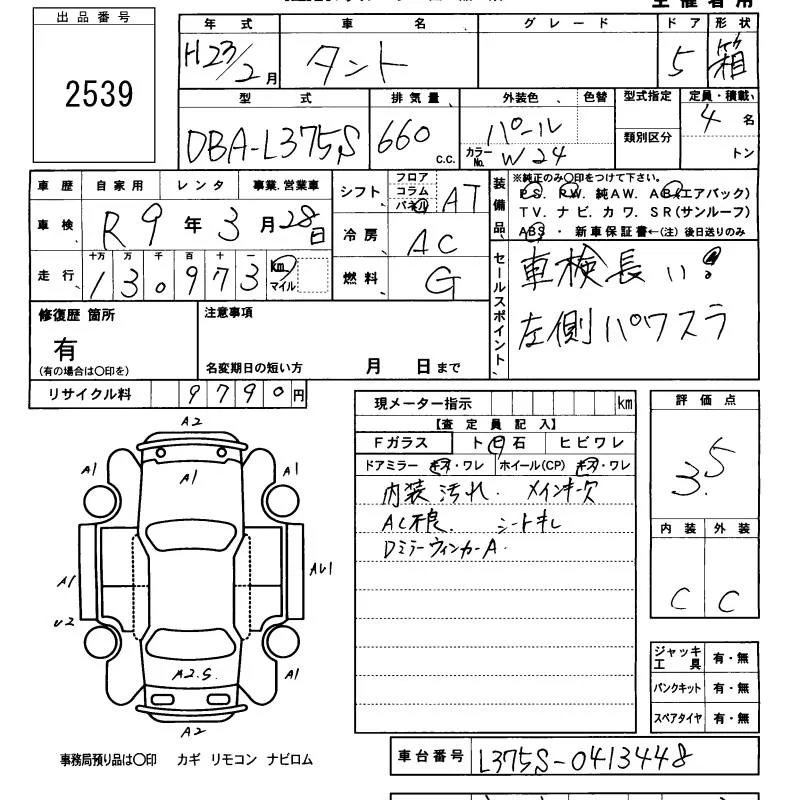 出品番号
2539
年式 車名 グレード ドア 形状
H23/2月 タント 5 箱
型式 排気量 外装色 色替 型式指定 定員・積載
DBA-L375S 660 c.c. パール 類別区分 4名
カラーNo. W24 トン
車歴 自家用 レンタ 事業.営業車 シフト フロア コラム パネル AT
車検 R9年3月28日 冷房 AC
走行 十万 万 千 百 十 一 km マイル 燃料 G
130973
装備品 ※純正のみ〇印をつけて下さい。
PS. PW. 純AW. AB(エアバック)
TV. ナビ. カワ. SR(サンルーフ)
ABS ・ 新車保証書←(注) 後日送りのみ
セールスポイント
車検長い!
左側パワスラ
修復歴 箇所
有
(有の場合は〇印を)
注意事項
名変期日の短い方 月 日まで
リサイクル料 9790円
現メーター指示 km
【査定員記入】
Fガラス トビ石 ヒビワレ
ドアミラー キズ・ワレ ホイール(CP) キズ・ワレ
内装汚れ. メインキー欠
AC不良. シートキレ
Dミラーウィンカー A.
評価点
3.5
内装 外装
C C
A2
A1 A1 A1
A1 AU1
U2
A2.S. A1
A2
ジャッキ工具 有・無
パンクキット 有・無
スペアタイヤ 有・無
事務局預り品は〇印 カギ リモコン ナビロム
車台番号 L375S-0413448